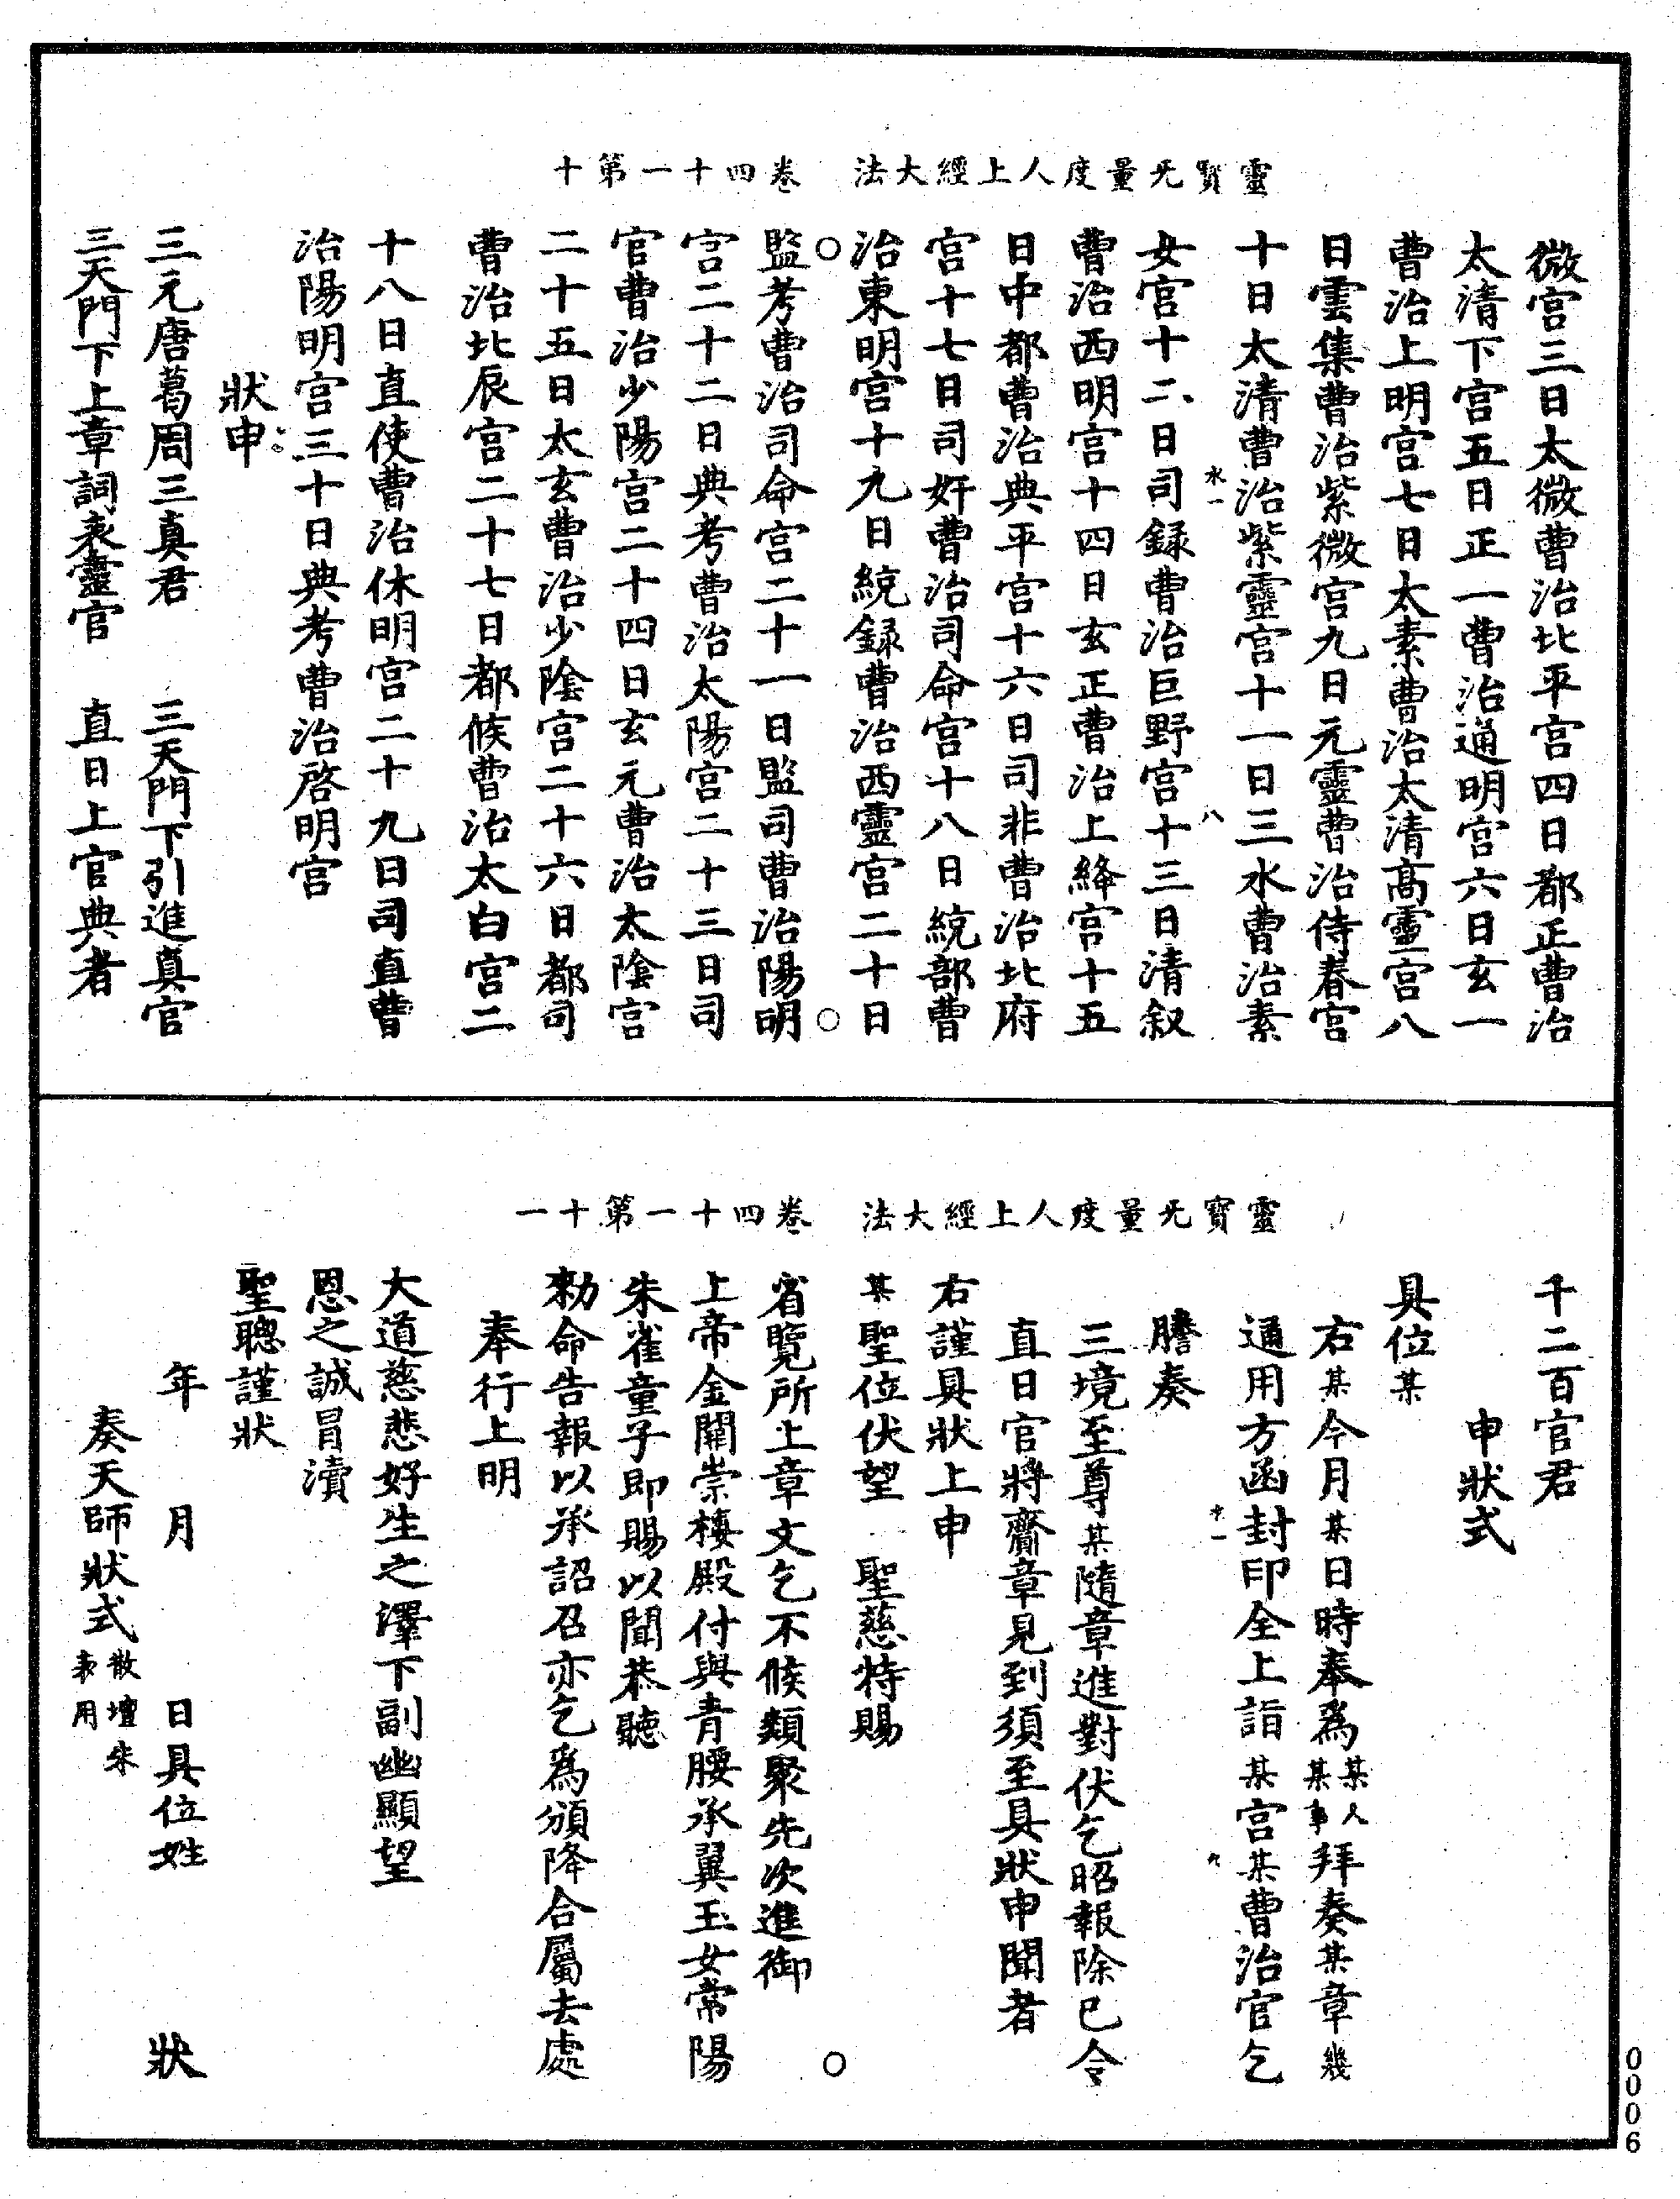 靈寳无量度人上經大法　卷四十一第十
微宫三日太微曹治北平宫四日都正曹治
太清下宫五日正一曹治通明宫六日玄一
曹治上明宫七日太素曹治太清髙靈宫八
日雲集曹治紫微宫九日元靈曹治侍春宫
十日太清曹治紫靈宫十一日三水曹治素
女宫十二日司録曹治巨野宫十三日清叙
曹治西明宫十四日玄正曹治上絳宫十五
日中都曹治典平宫十六日司非曹治北府
宫十七日司奸曹治司命宫十八日統部曹
治東明宫十九日統録曹治西靈宫二十日
監考曹治司命宫二十一日監司曹治陽明
宫二十二日典考曹治太陽宫二十三日司
官曹治少陽宫二十四日玄元曹治太陰宫
二十五日太玄曹治少陰宫二十六日都司
曹治北辰宫二十七日都候曹治太白宫二
十八日直使曹治休明宫二十九日司直曹
治陽明宫三十日典考曹治啓明宫
狀申
三元唐葛周三真君　三天門下引進真官
三天門下上章詞表靈官　直日上官典者
靈寳无量度人上經大法　卷四十一第十一
千二百官君
申狀式
具位某
右某今月某日時奉爲某人某事拜奏某章幾
通用方函封印全上詣某宫某曹治官乞
謄奏
三境至尊某隨章進對伏乞昭報除已令
直日官將齎章見到須至具狀申聞者
右謹具狀上申
某聖位伏望　聖慈特賜
省覽所上章文乞不候類聚先次進御
上帝金闕崇樓殿付與青腰承翼玉女常陽
朱雀童子即賜以聞恭聽
勑命告報以承詔召亦乞爲頒降合屬去處
奉行上明
大道慈悲好生之澤下副幽顯望
恩之誠冒瀆
聖聰謹狀
年　月　日具位姓　狀
奏天師狀式散壇朱表用
0006